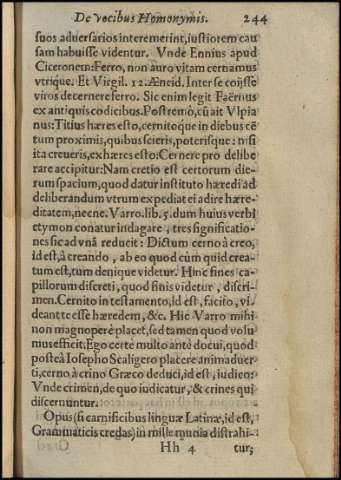 De vocibus Homonymis. 244
suos aduersarios interemerint, iustiorem cau
sam habuisse videntur. Vnde Ennius apud
Ciceronem: Ferro, non auro vitam cernamus
vtrique. Et Virgil. 12. Æneid. Inter se coijsse
viros decernere ferro. Sic enim legit Faërnus
ex antiquis codicibus. Postremò, cũ ait Vlpia
nus: Titius hæres esto, cernitoq́ue in diebus cẽ
tum proximis, quibus scieris, poterisque: nisi
ita creueris, exhæres esto: Cernere pro delibe
rare accipitur: Nam cretio est certorum die-
rum spacium, quod datur instituto hæredi ad
deliberandum vtrum expediat ei adire hære-
ditatem, necne. Varro. lib. 5. dum huius verbi
etymon conatur indagare, tres significatio-
nes sic ad vnã reducit: Dictum cerno à creo,
id est, à creando, ab eo quod cùm quid crea-
tum est, tum denique videtur. Hinc fines ca-
pillorum discreti, quod finis videtur, discri-
men. Cernito in testamento, id est, facito, vi-
deant te esse hæredem, &c. Hic Varro mihi
non magnoperè placet, sed tamen quod volu
mus efficit. Ego certe multo antè docui, quod
posteà Iosepho Scaligero placere animaduer-
ti, cerno à crino Græco deduci, id est, iudico:
Vnde crimen, de quo iudicatur, & crines qui
discernuntur.
Opus (si carnificibus linguæ Latinæ, id est,
Grammaticis credas) in mille munia distrahi-
Hh 4 tur;